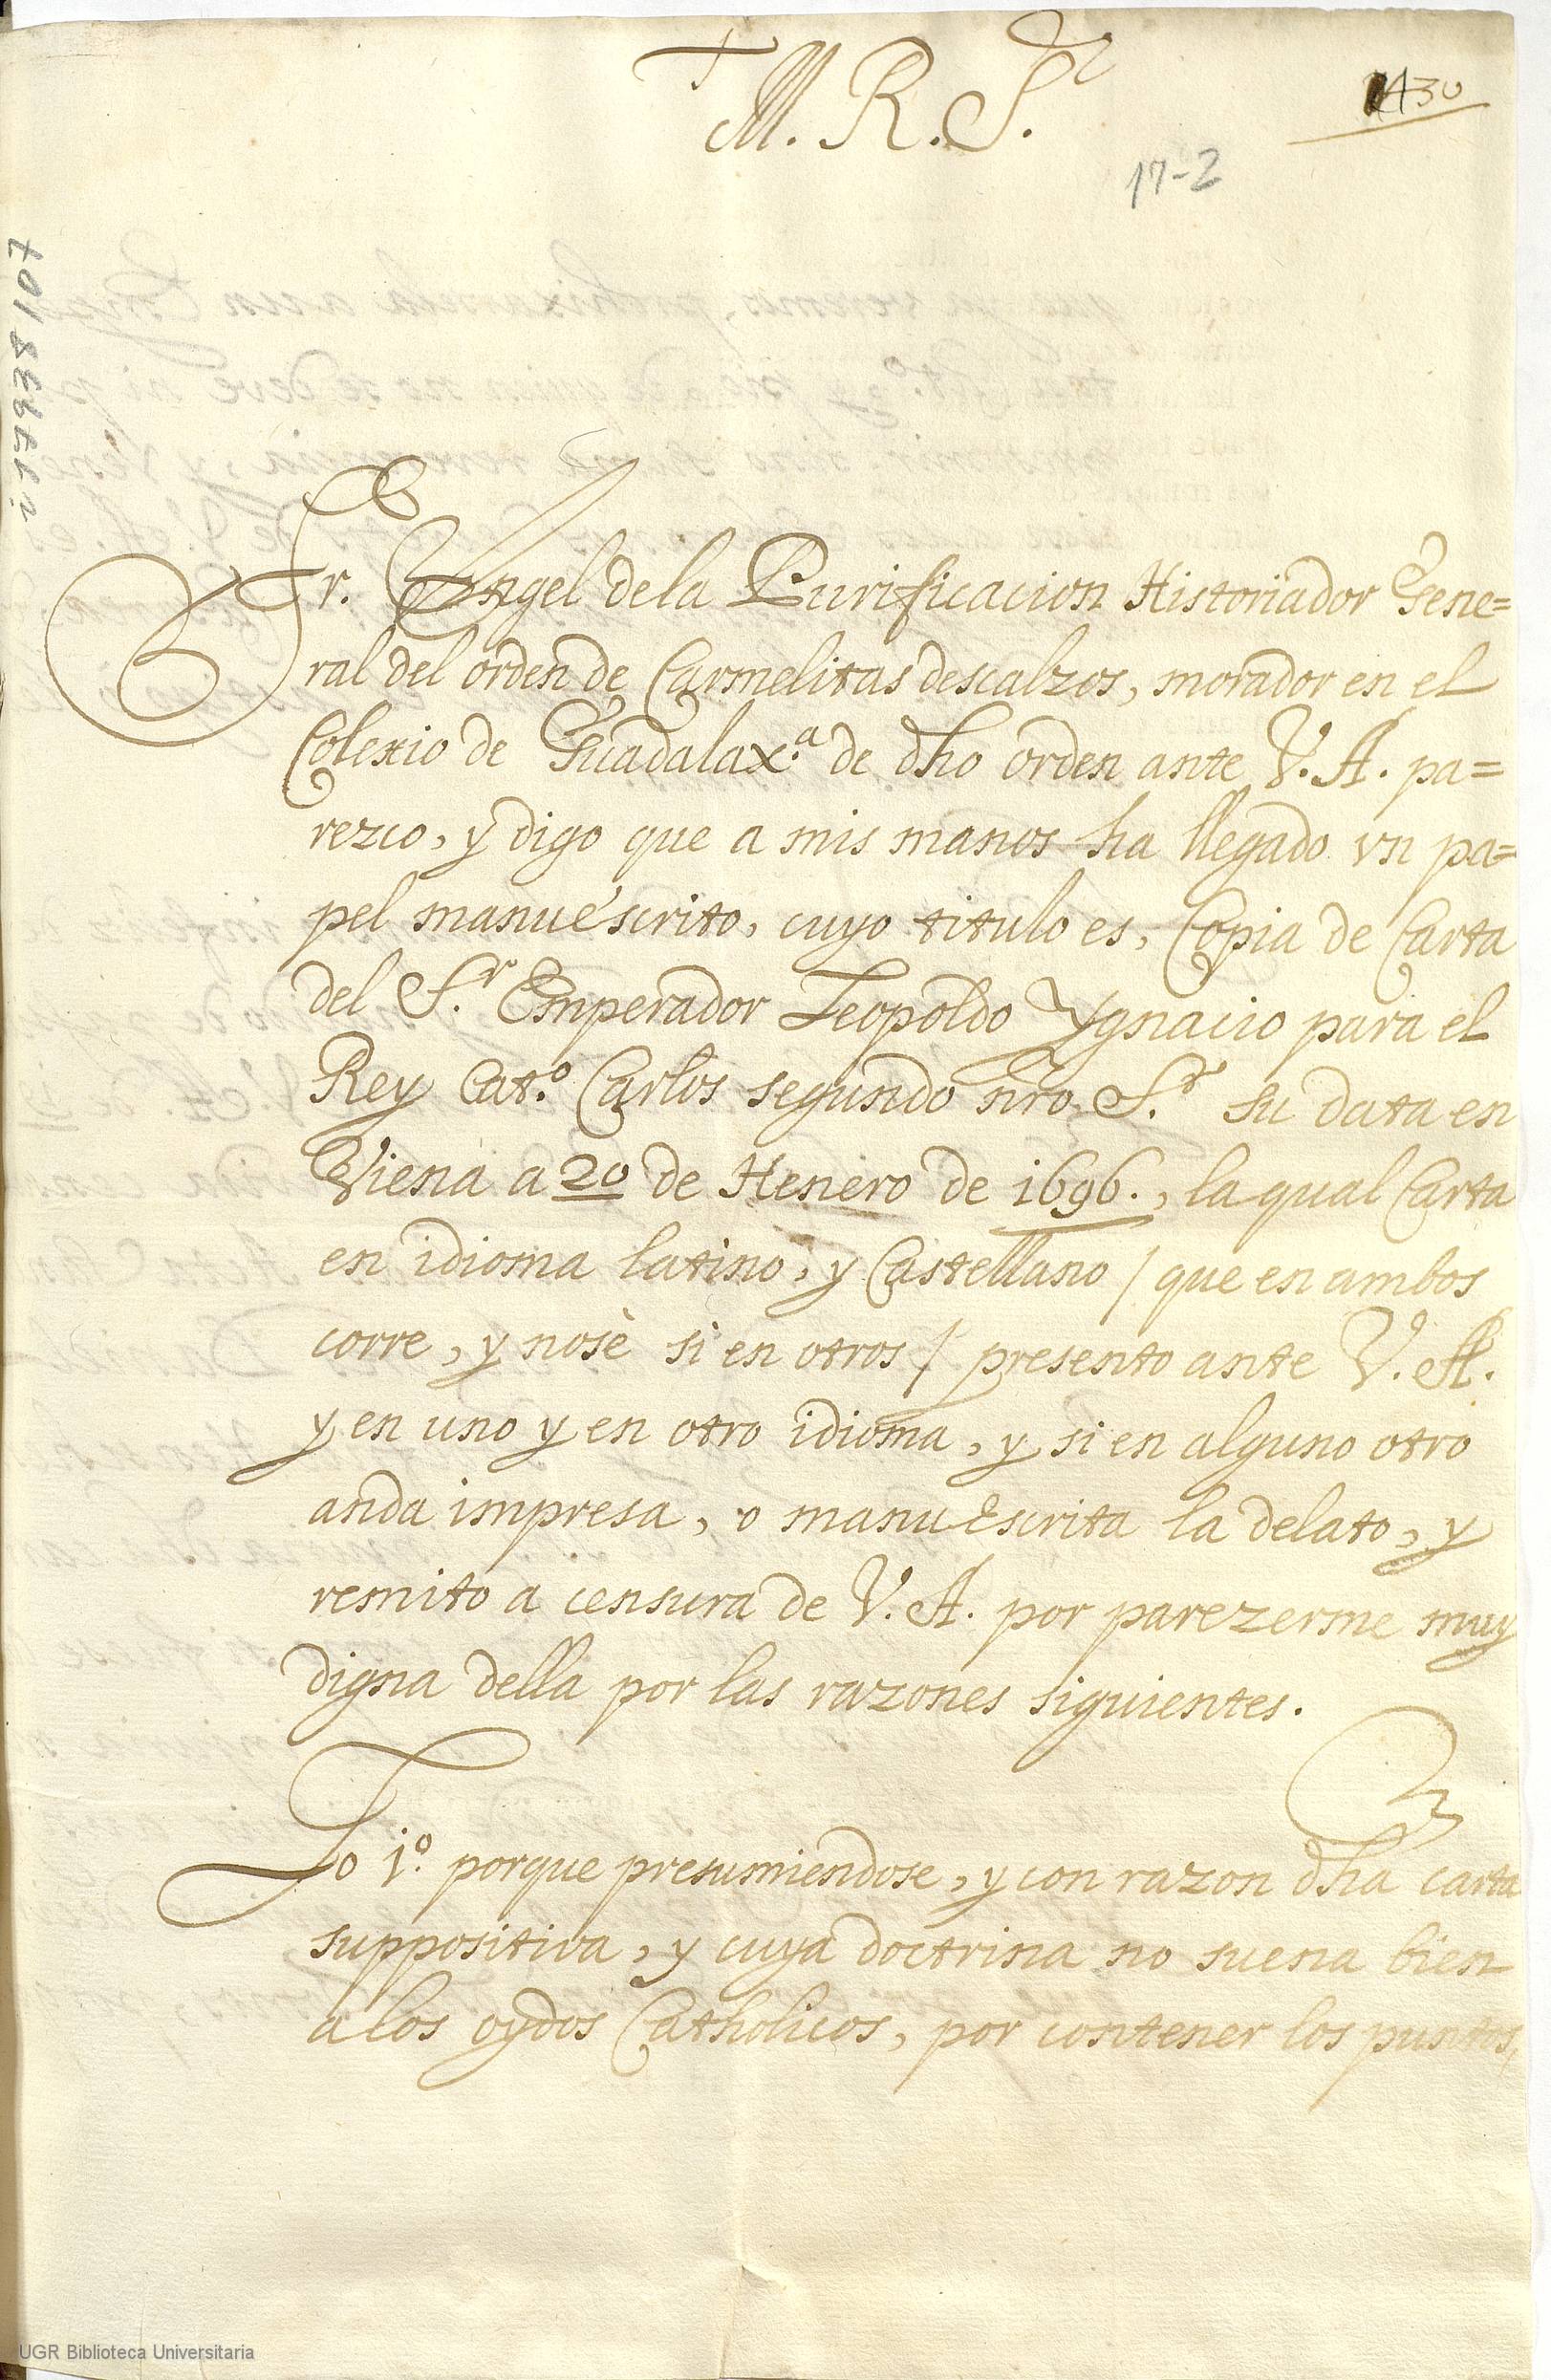 †
M. R. S.r
430
17-2
i17938107
Fr. Angel de la Purificacion Historiador Gene=
ral del orden de Carmelitas descalzos, morador en el
Colexio de Guadalax.a de dho orden ante V. A. pa=
rezco, y digo que a mis manos ha llegado vn pa=
pel manuescrito, cuyo titulo es, Copia de Carta
del S.r Emperador Leopoldo Ygnacio para el
Rey Cat.o Carlos segundo nro S.r su data en
Viena a 20 de Henero de 1696., la qual Carta
en idioma latino, y Castellano / que en ambos
corre, y nosè si en otros / presento ante V. A.
y en uno y en otro idioma, y si en alguno otro
anda impresa, o manuescrita la delato, y
remito a censura de V. A. por parezerme muy
digna della por las razones siguientes.
Lo 1.o porque presumiendose, y con razon dha carta
suppositiva, y cuya doctrina no suena bien
a los oydos Catholicos, por contener los puntos,
UGR Biblioteca Universitaria